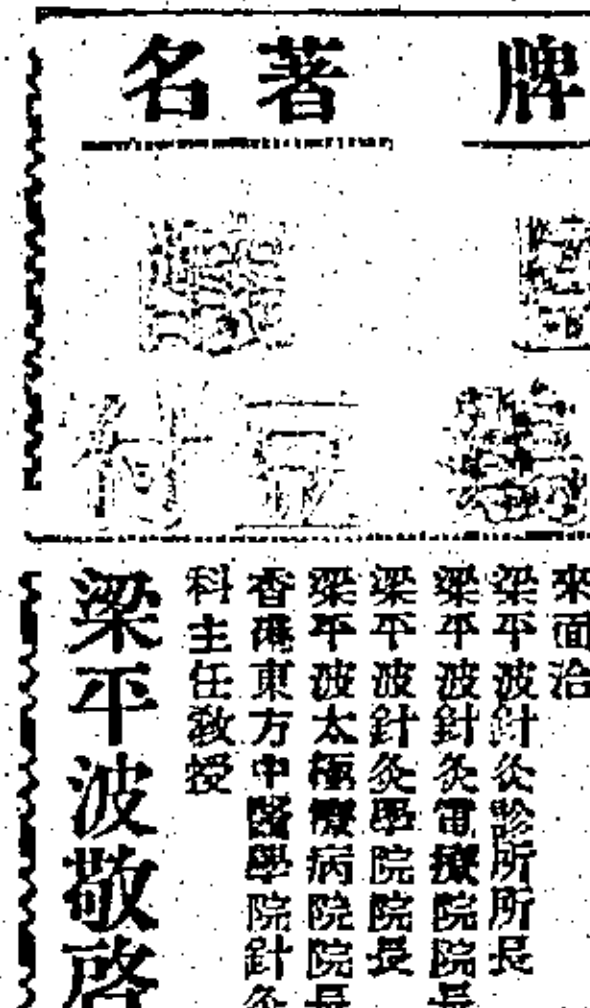 牌
著名
來面洽
梁平波針灸診所所長
梁平波針灸電療院院長
梁平波針灸學院院長
梁平波太極療病院院長
香港東方中醫學院針灸
科主任教授
梁平波敬啓